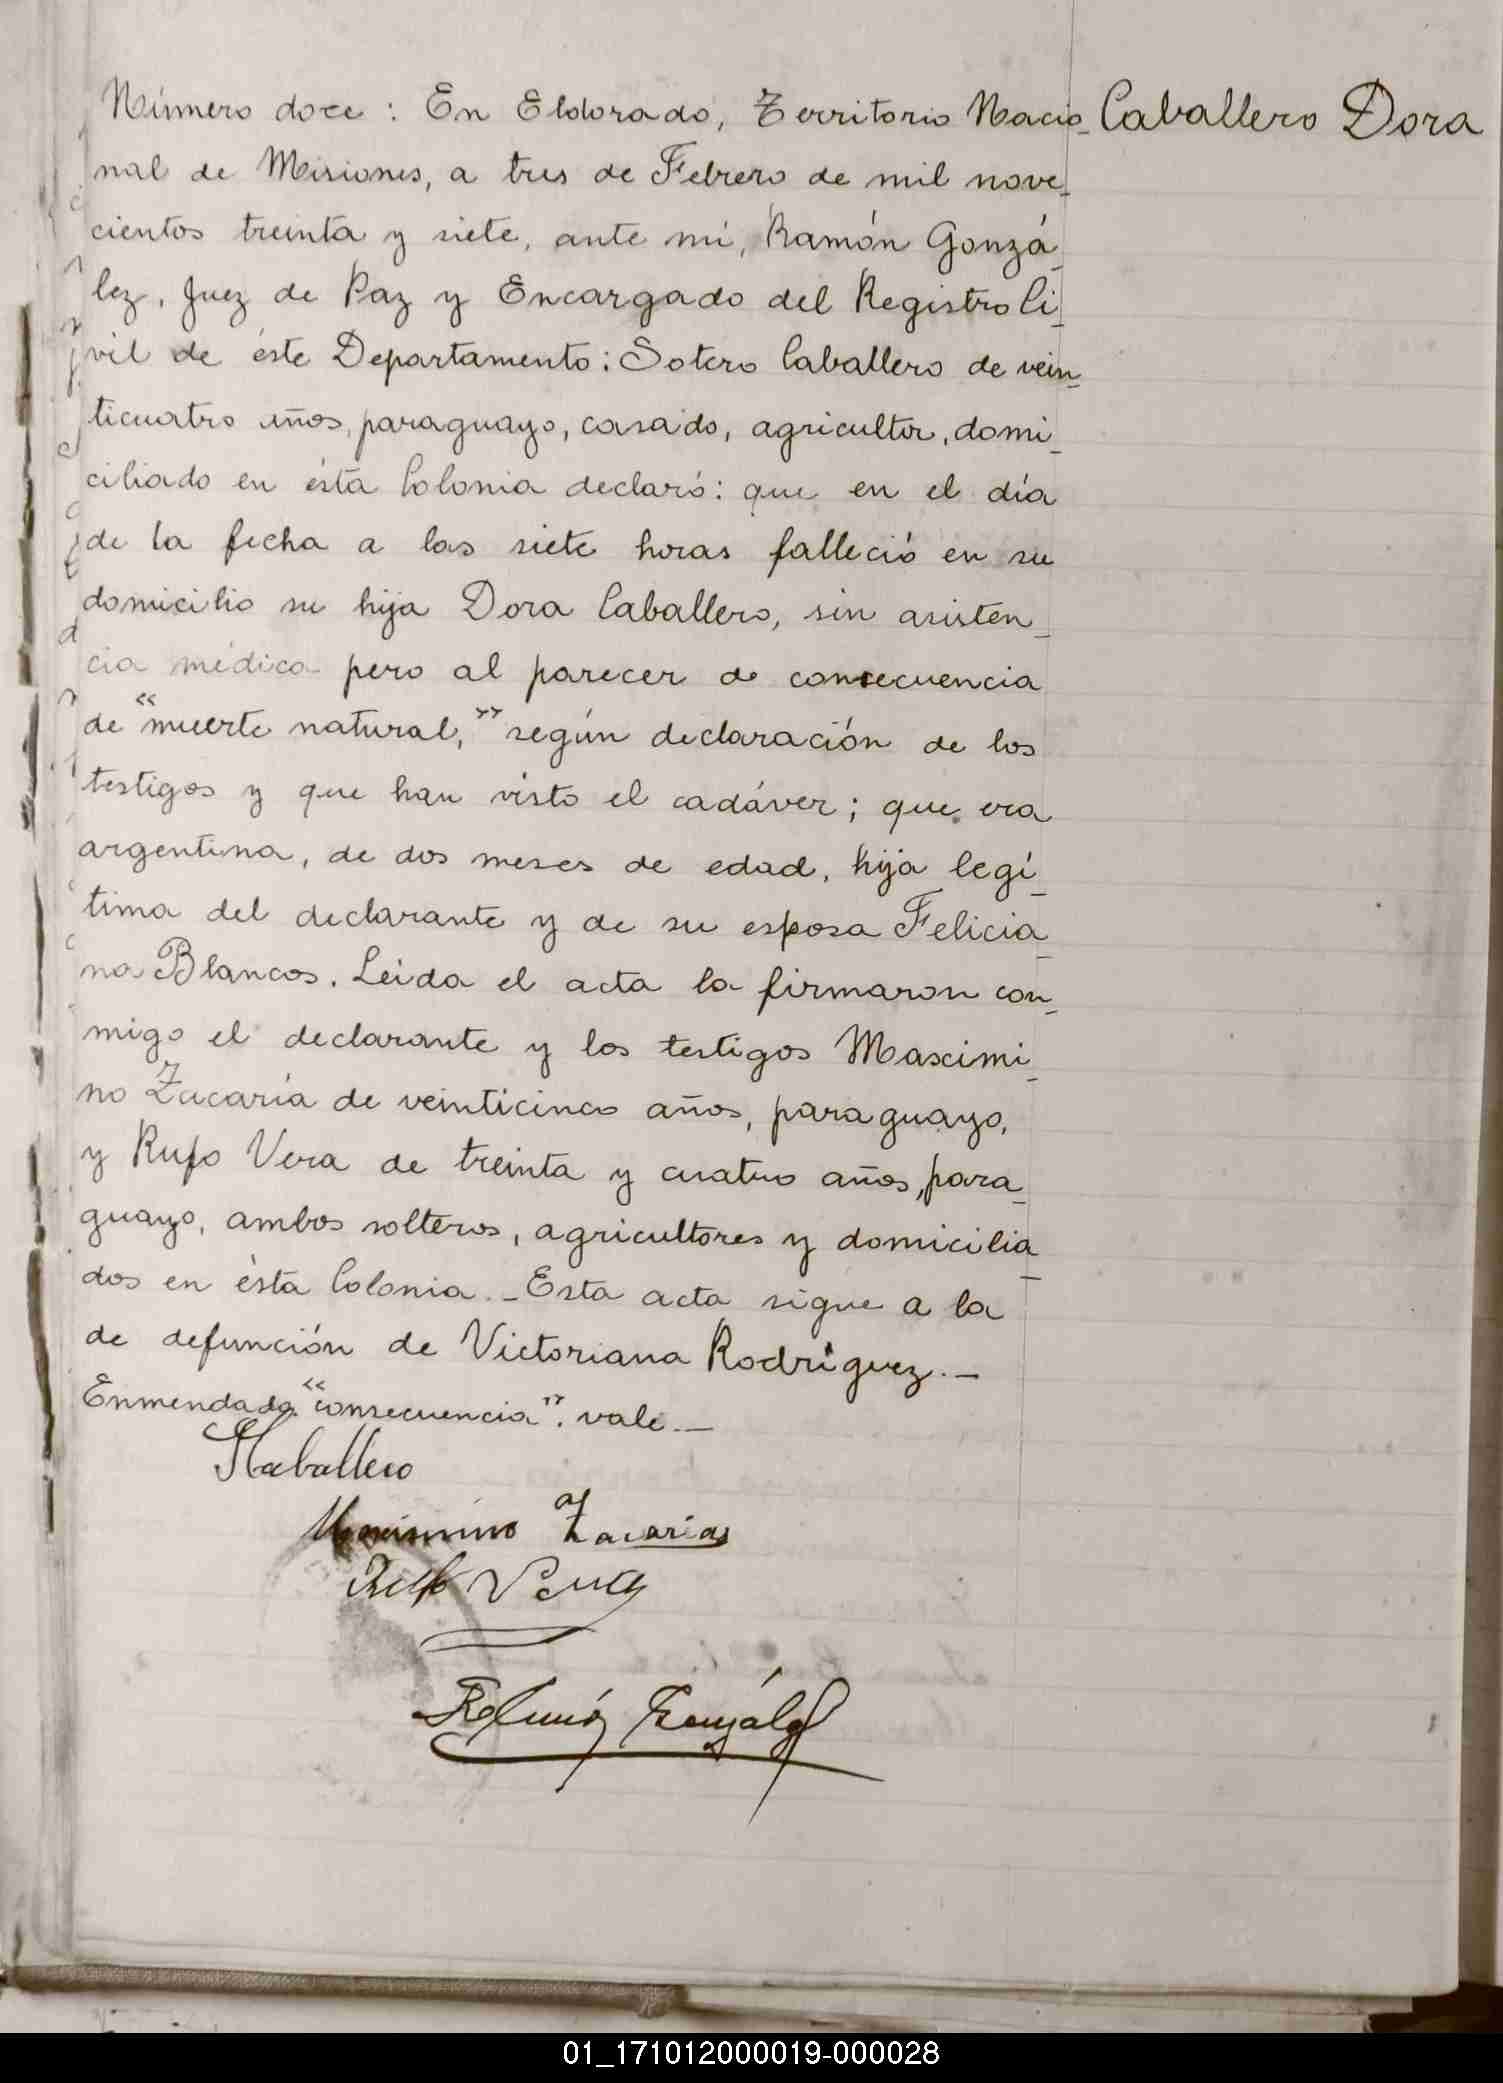 Número doce: En Eldorado, Territorio Nacio_ Caballero Dora
nal de Misiones, a tres de Febrero de mil nove_
cientos treinta y siete, ante mí, Ramón Gonzá_
lez, Juez de Paz y Encargado del Registro Ci_
vil de éste Departamento: Sotero Caballero de vein_
ticuatro años, paraguayo, casado, agricultor, domi_
ciliado en ésta Colonia declaró: que en el día
de la fecha a las siete horas falleció en su
domicilio su hija Dora Caballero, sin asisten_
cia médica pero al parecer de consecuencia
de "muerte natural," según declaración de los
testigos y que han visto el cadáver; que era
argentina, de dos meses de edad, hija legí_
tima del declarante y de su esposa Felicia_
na Blancos. Leída el acta la firmaron con_
migo el declarante y los testigos Maximi_
no Zacaría de veinticinco años, paraguayo,
y Rufo Vera de treinta y cuatro años, para_
guayo, ambos solteros, agricultores y domicilia_
dos en ésta Colonia._Esta acta sigue a la
de defunción de Victoriana Rodríguez._
Enmendado "consecuencia". vale._
SCaballero
Maximino Zacarias
Rufo Vera
Ramón González
01_171012000019-000028